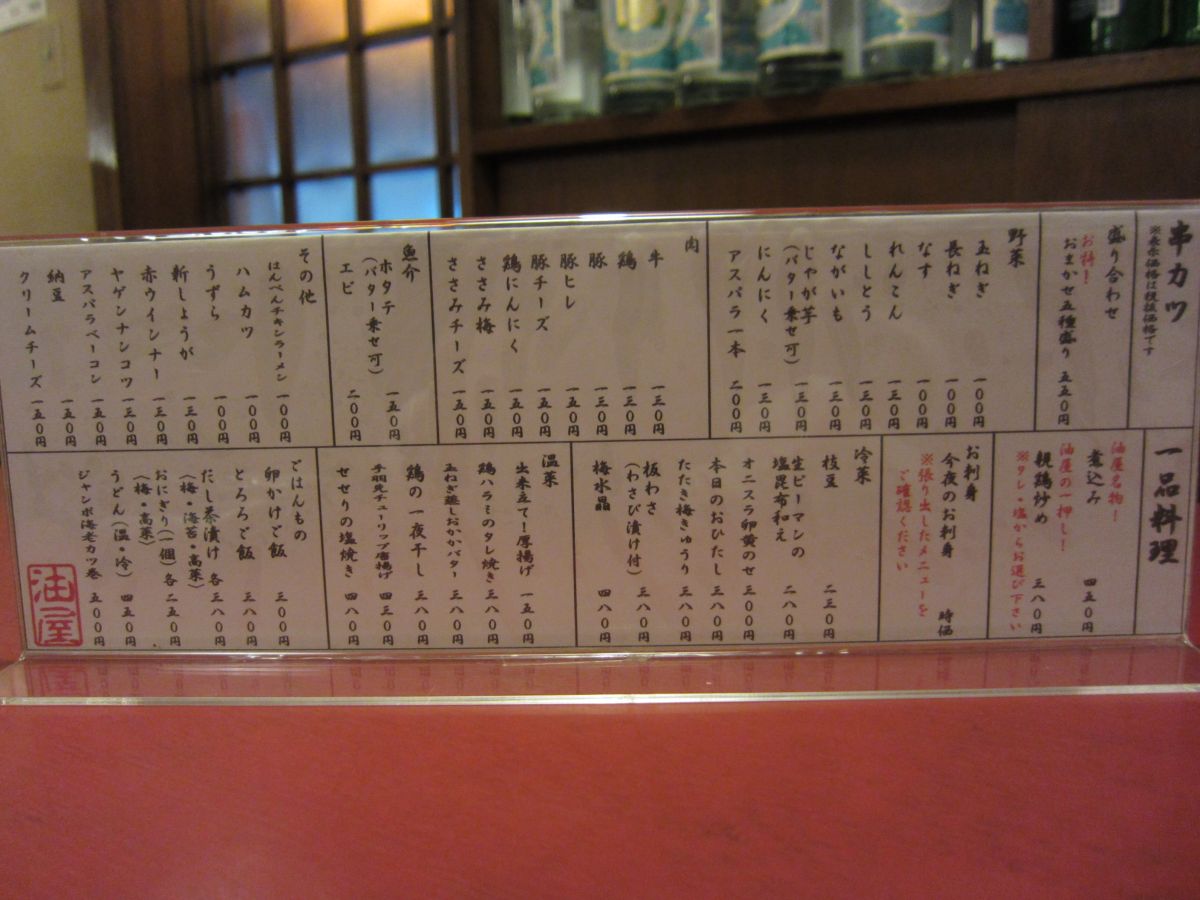 串カツ
※表示価格は税抜価格です
盛り合わせ
お得!
おまかせ五種盛り 五五〇円
野菜
玉ねぎ 一〇〇円
長ねぎ 一〇〇円
なす 一〇〇円
れんこん 一三〇円
ししとう 一三〇円
ながいも 一三〇円
じゃが芋
(バター乗せ可) 一三〇円
にんにく 一三〇円
アスパラ一本 二〇〇円
肉
牛 一三〇円
鶏 一三〇円
豚 一三〇円
豚ヒレ 一五〇円
豚チーズ 一五〇円
鶏にんにく 一五〇円
ささみ梅 一五〇円
ささみチーズ 一五〇円
魚介
ホタテ 一五〇円
(バター乗せ可)
エビ 二〇〇円
その他
はんぺんチキンラーメン 一〇〇円
ハムカツ 一〇〇円
うずら 一〇〇円
新しょうが 一三〇円
赤ウインナー 一三〇円
ヤゲンナンコツ 一三〇円
アスパラベーコン 一五〇円
納豆 一五〇円
クリームチーズ 一五〇円
一品料理
油屋名物!
煮込み 四五〇円
油屋の一押し!
親鶏炒め 三八〇円
※タレ・塩からお選び下さい
お刺身
今夜のお刺身 時価
※張り出したメニューを
ご確認ください
冷菜
枝豆 二三〇円
生ピーマンの
塩昆布和え 二八〇円
オニスラ卵黄のせ 三〇〇円
本日のおひたし 三八〇円
たたき梅きゅうり 三八〇円
板わさ
(わさび漬け付) 三八〇円
梅水晶 四八〇円
温菜
出来立て!厚揚げ 一五〇円
鶏ハラミのタレ焼き 三八〇円
玉ねぎ蒸しおかかバター 三八〇円
鶏の一夜干し 三八〇円
手羽先チューリップ唐揚げ 四三〇円
せせりの塩焼き 四八〇円
ごはんもの
卵かけご飯 三〇〇円
とろろご飯 三八〇円
だし茶漬け 各三八〇円
(梅・海苔・高菜)
おにぎり(一個) 各二五〇円
(梅・高菜)
うどん(温・冷) 四五〇円
ジャンボ海老カツ巻 五〇〇円
油屋